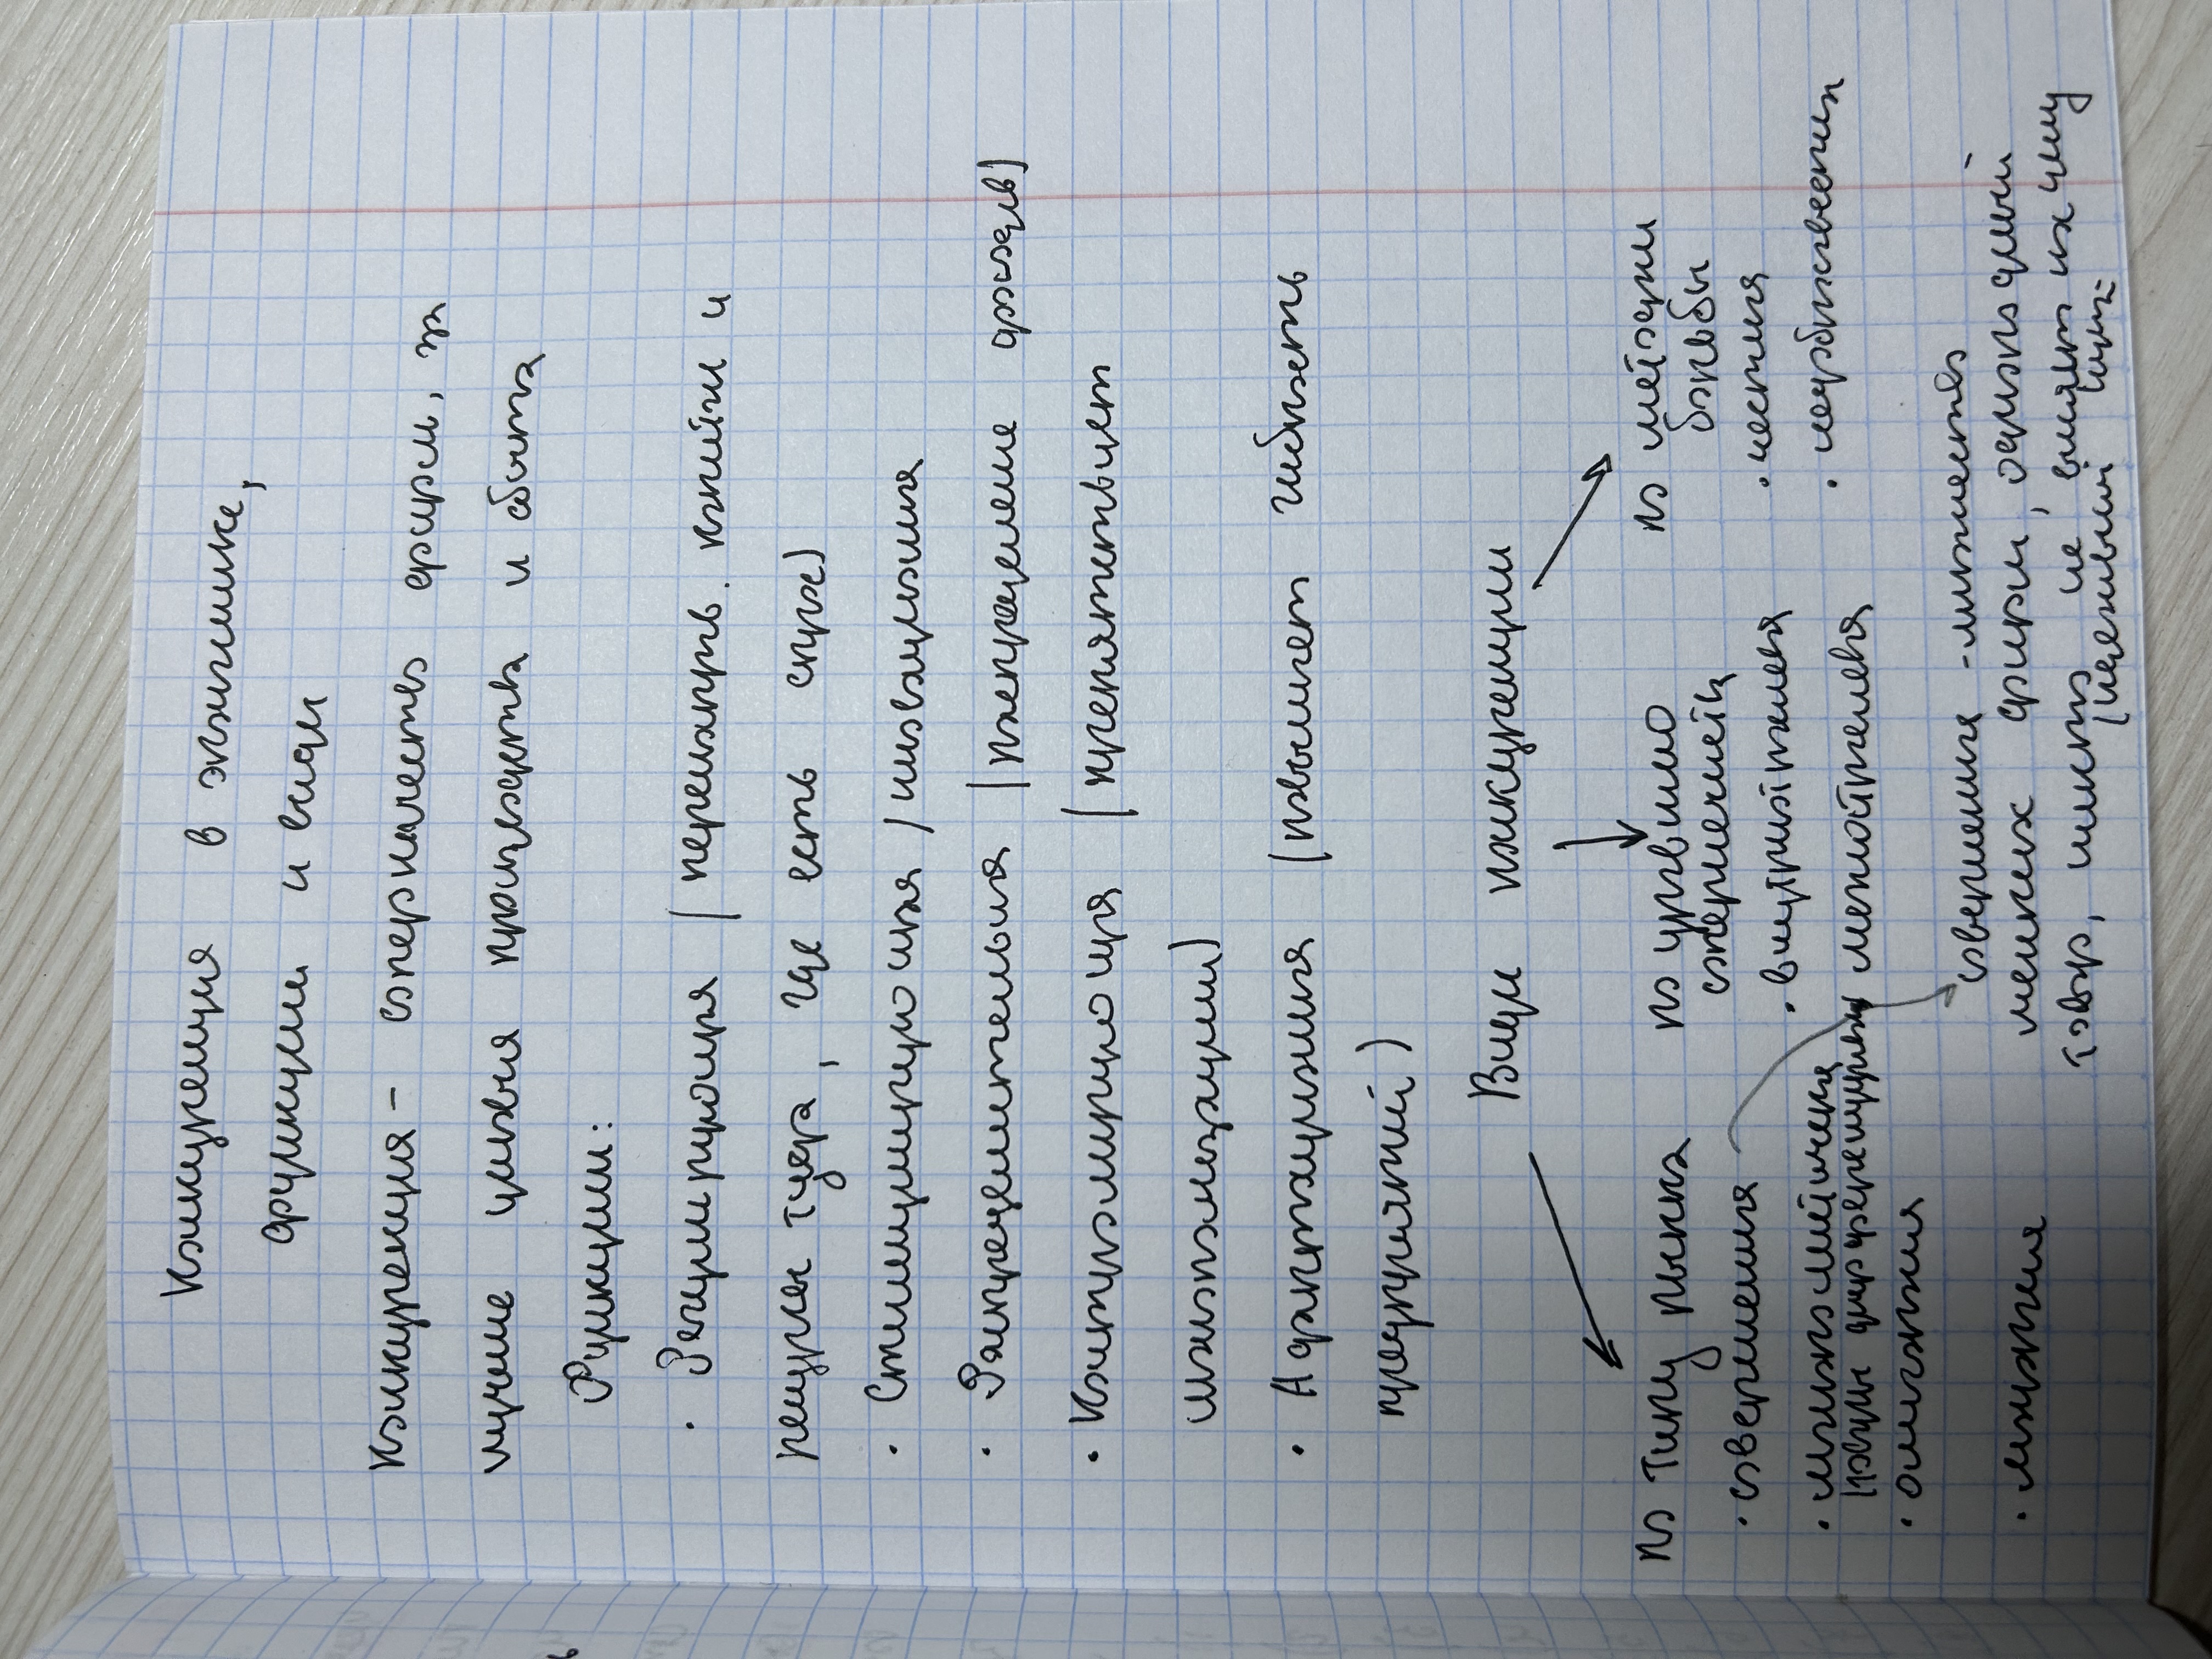 Конкуренция в экономике,
функции и виды
Конкуренция - соперничество фирм, за
лучшие условия производства и сбыта
Функции:
· Регулирующая (перенаправ. капитал и
ресурсы туда, где есть спрос)
· Стимулирующая (инновационная
· Распределительная (распределение доходов)
· Контролирующая (препятствует
монополизации)
· Адаптационная (повышает гибкость
предприятий)
Виды конкуренции
по типу рынка
· совершенная
· монополистическая
(товары дифференцированы
· олигополия
· монополия
по уровню
отраслей
· внутриотраслевая
межотраслевая
по методам
борьбы
· честная
· недобросовестная
совершенная - множество
мелких фирм, однородный
товар, никто не влияет на цену